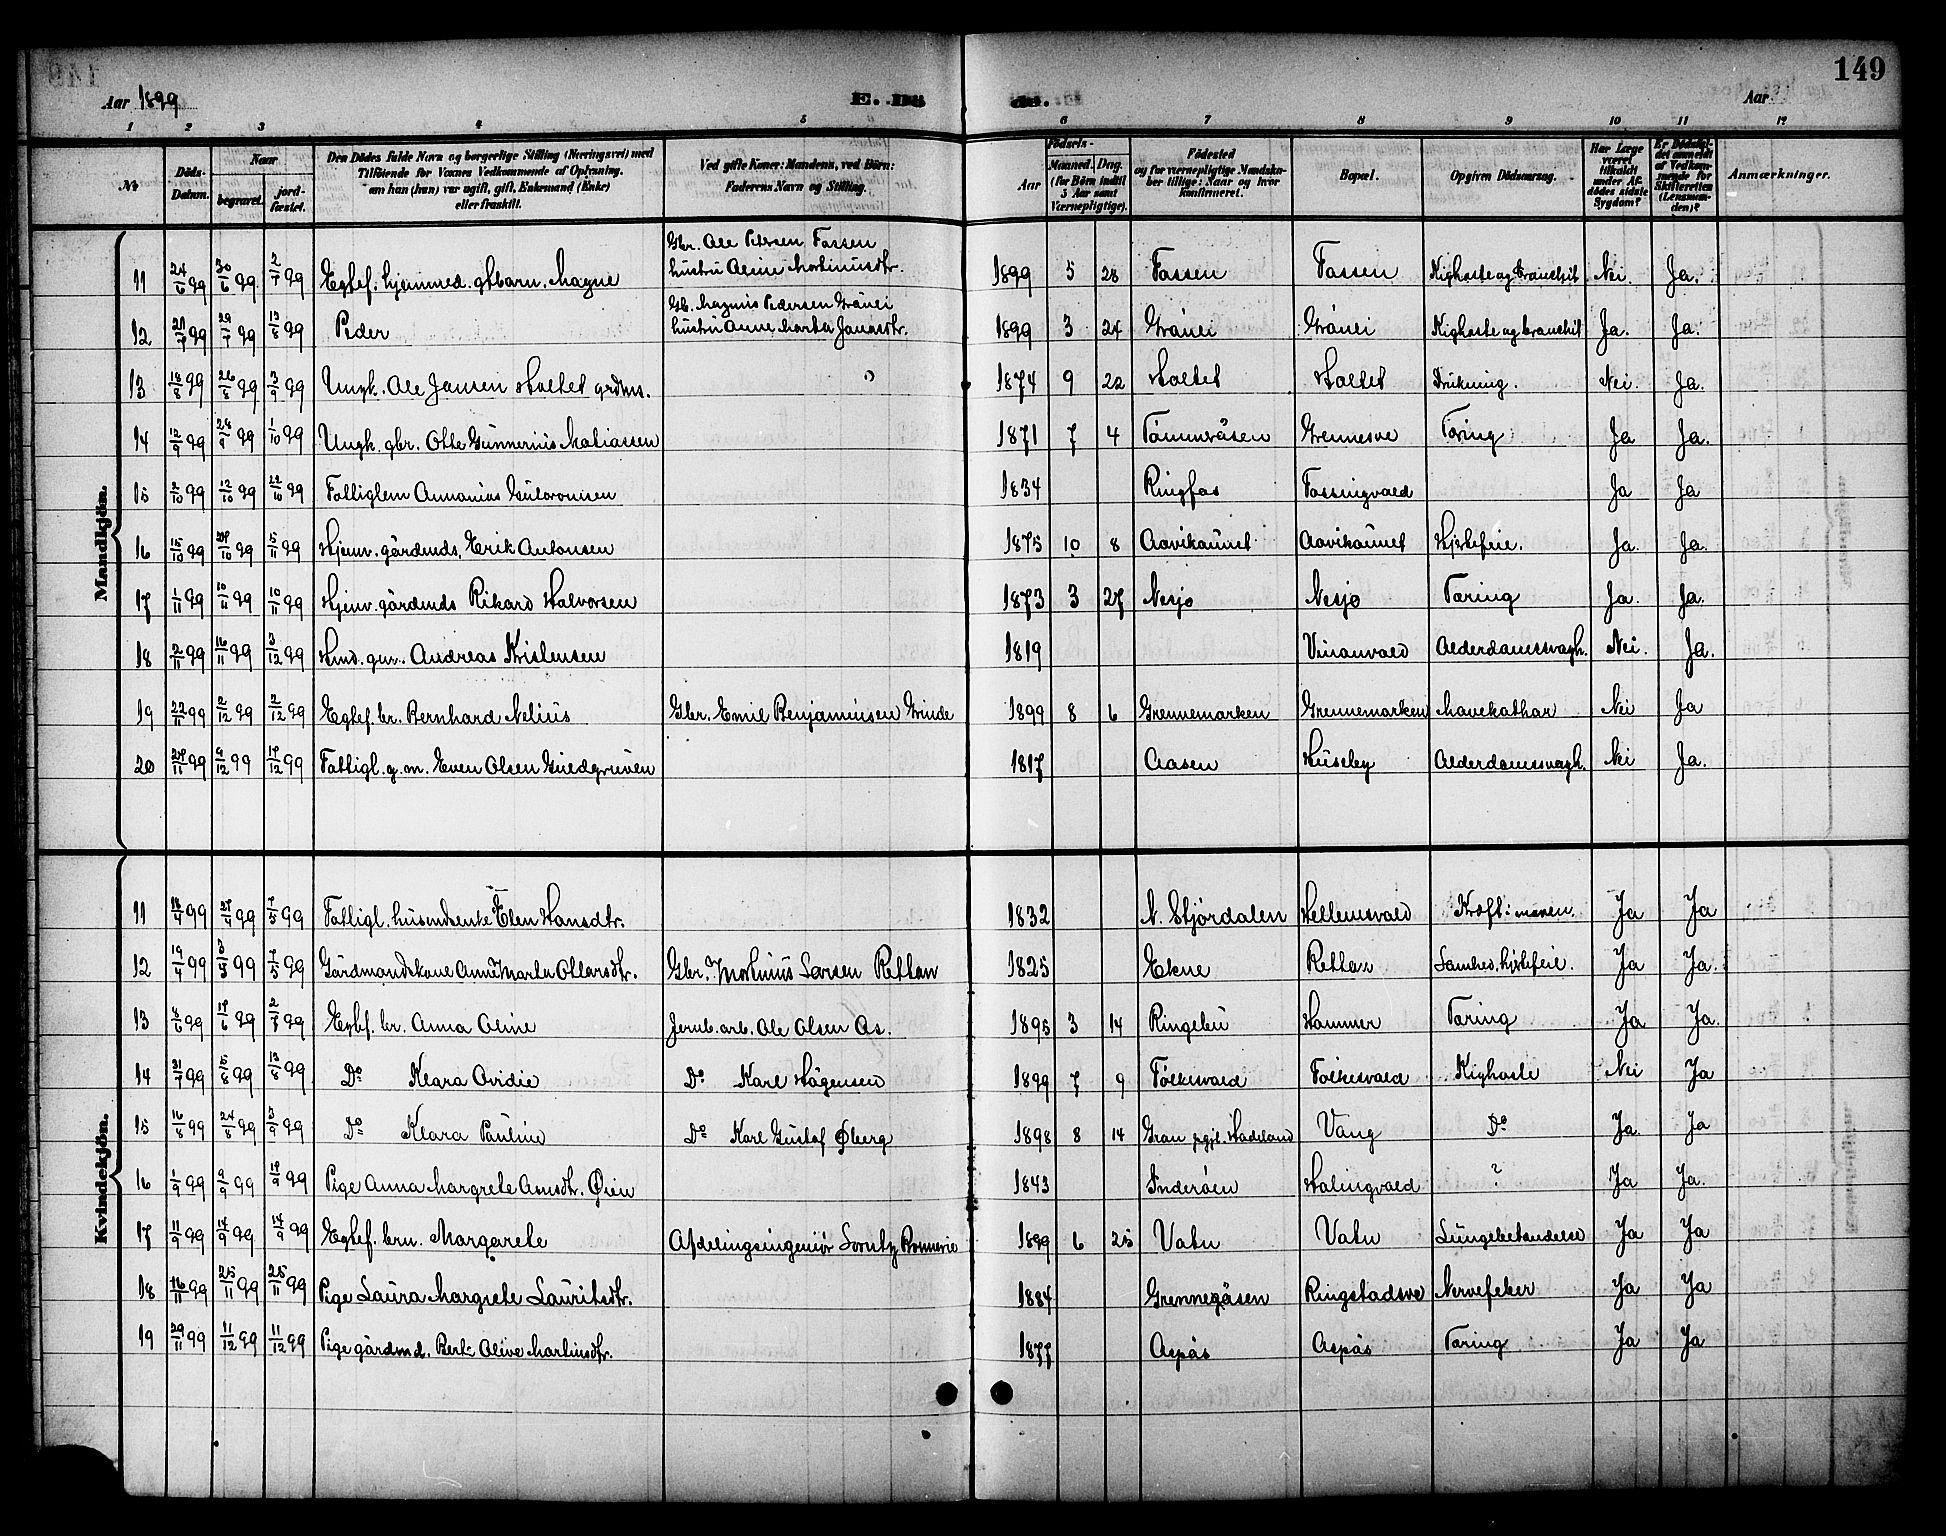 149
Aar 1899 E. Dö de. Aar
1 2 3 4 5 6 7 8 9 10 11 12
No. Döds-Datum. Naar begravet. jord-fæstet. Den Dödes fulde Navn og borgerlige Stilling (Næringsvei) med Tilföiende for Voxnes Vedkommende af Oplysning, om han (hun) var ugift, gift, Enkemand (Enke) eller fraskilt. Ved gifte Koner: Mandens, ved Börn: Faderens Navn og Stilling. Födsels- Aar Maaned. Dag. (for Börn indtil 5 Aar samt Værnepligtige). Födested og for værnepligtige Mandskaber tillige: Naar og hvor konfirmeret. Bopæl. Opgiven Dödsaarsag. Har Læge været tilkaldt under Afdödes sidste Sygdom? Er Dödsfaldet anmeldt af Vedkommende for Skifteretten (Lensmanden)? Anmærkninger.
Mandkjön.
11 24/6 99 30/6 99 2/7 99 Egtef. hjemmed. gbbarn. Magne Gbr. Ole Petersen Fossen hustru Oline Mortinusdtr. 1899 5 28 Fossen Fossen Kighoste og bronchit Nei. Ja.
12 21/7 99 29/7 99 13/8 99 Peder Gb. Magnus Pedersen Gränei hustru Anne Marta Jonasdtr. 1899 3 24 Gränei Gränei Kighoste og bronchit Ja. Ja.
13 18/8 99 26/8 99 3/9 99 Ungk. Ole Jansen Holtet grdms. 1874 9 22 Holtet Holtet Drukning. Nei. Ja.
14 12/9 99 28/9 99 1/10 99 Ungk. gbr. Otte Gunnerius Matiassen 1871 7 4 Tömmeråsen Grennesve Tæring Ja Ja.
15 2/10 99 12/10 99 22/10 99 Fattiglem Annanias 1834 Ringfos Fossingvald Ja Ja
16 15/10 99 27/10 99 5/11 99 Hjemv. gårdmds. Erik Antonsen 1875 10 8 Aavikaunet Aavikaunet Hjertefeie. Ja. Ja.
17 1/11 99 10/11 99 10/11 99 Hjemv. gårdmds Rikard Halvorsen 1873 3 27 Nesjø Nesjø Tæring Ja. Ja.
18 2/11 99 16/11 99 3/12 99 Hmd. gm. Andreas Kristensen 1819 Vinanvald Alderdomssvagh. Nei. Ja.
19 22/11 99 2/12 99 2/12 99 Egtef. br. Bernhard Nelius Gbr. Emil Benjaminsen Grinde 1899 8 6 Grennemarken Grennemarken Mavekathar Nei Ja
20 27/11 99 9/12 99 17/12 99 Fattigl. g.m. Even Olsen Guldgruven 1817 Aasen Huseby Alderdomssvagh. Nei Ja.
Kvindekjön.
11 16/4 99 27/4 99 7/5 99 Fattigl. husmdsenke Elen Hansdtr. 1832 N. Stjördalen Hellemsvald Kræft i maven. Ja Ja
12 19/4 99 3/5 99 7/5 99 Gårdmandskone Anne Marta Ottarsdtr. Gbr. Mortinius Larsen Rettan 1825 Ekne Rettan hjertefeie. Ja Ja.
13 8/6 99 17/6 99 2/7 99 Egtef. br. Anna Oline Jernb.arb. Ole Olsen As. 1895 3 14 Ringebu Hammer Tæring Ja Ja.
14 21/7 99 5/8 99 13/8 99 Do Klara Ovidie Do Karl Hågensen 1899 7 9 Folkesvald Folkesvald Kighoste Nei Ja
15 16/8 99 24/8 99 3/9 99 Do Klara Pauline Do Karl Gustaf Øberg 1898 8 14 Gran pgjl. Hadeland Vang Do Ja. Ja
16 1/9 99 9/9 99 19/9 99 Pige Anna Margrete Arnsdtr. Øien 1843 Inderöen Halingvald ? Ja Ja.
17 11/9 99 14/9 99 14/9 99 Egtef. brn. Margarete Afdelingsingeniör Lorntz Bonnevie 1899 6 25 Vatn Vatn Lungebetændelse Ja Ja
18 16/11 99 25/11 99 25/11 99 Pige Laura Margrete Lauritsdtr. 1884 Grennesåsen Ringstadsve Nervefeber Ja Ja
19 29/11 99 11/12 99 11/12 99 Pige gårdmd. Berit Olive Martinsdtr. 1877 Aspås Aspås Tæring Ja Ja